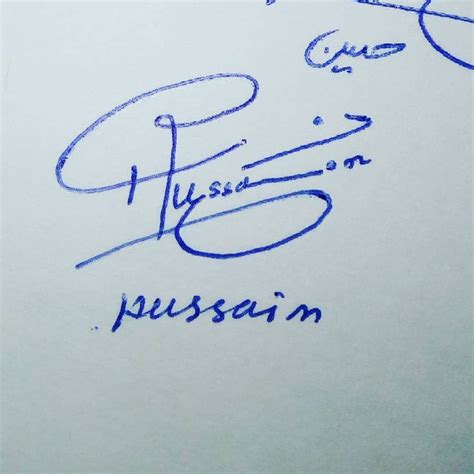 حسين
Hussain
Hussain